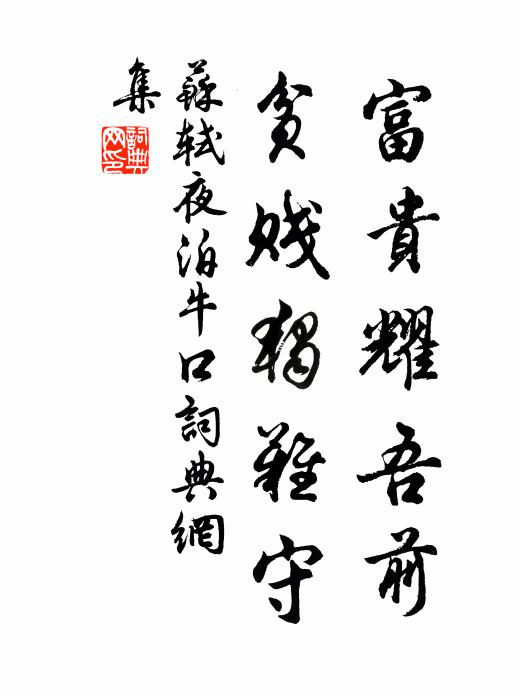 富貴耀吾前
貧賤獨難守
蘇軾夜泊牛口詞典網
集
詞典
网印